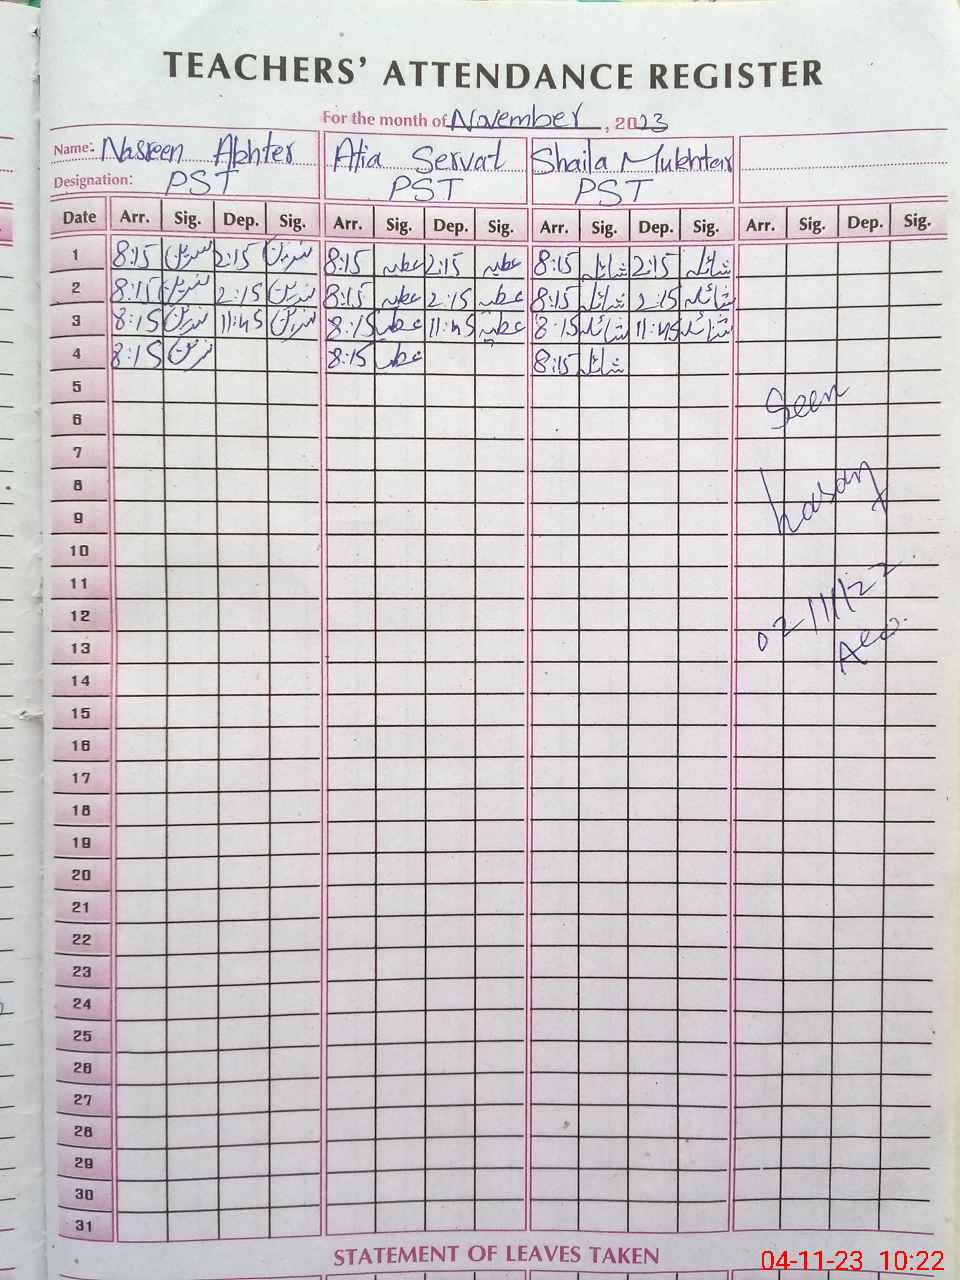 TEACHERS' ATTENDANCE REGISTER
For the month of November, 2023
Name: Nasreen Akhter Atia Servat Shaila Mukhtar
Designation: PST PST PST
Date Arr. Sig. Dep. Sig. Arr. Sig. Dep. Sig. Arr. Sig. Dep. Sig. Arr. Sig. Dep. Sig.
1 8:15 نسرین 2:15 نسرین 8:15 عطیہ 2:15 عطیہ 8:15 شائلہ 2:15 شائلہ
2 8:15 نسرین 2:15 نسرین 8:15 عطیہ 2:15 عطیہ 8:15 شائلہ 2:15 شائلہ
3 8:15 نسرین 11:45 نسرین 8:15 عطیہ 11:45 عطیہ 8:15 شائلہ 11:45 شائلہ
4 8:15 نسرین 8:15 عطیہ 8:15 شائلہ
5
Seen
6
7
8
9
10
11
12
13
14
15
16
17
18
19
20
21
22
23
24
25
26
27
28
29
30
31
STATEMENT OF LEAVES TAKEN
04-11-23 10:22